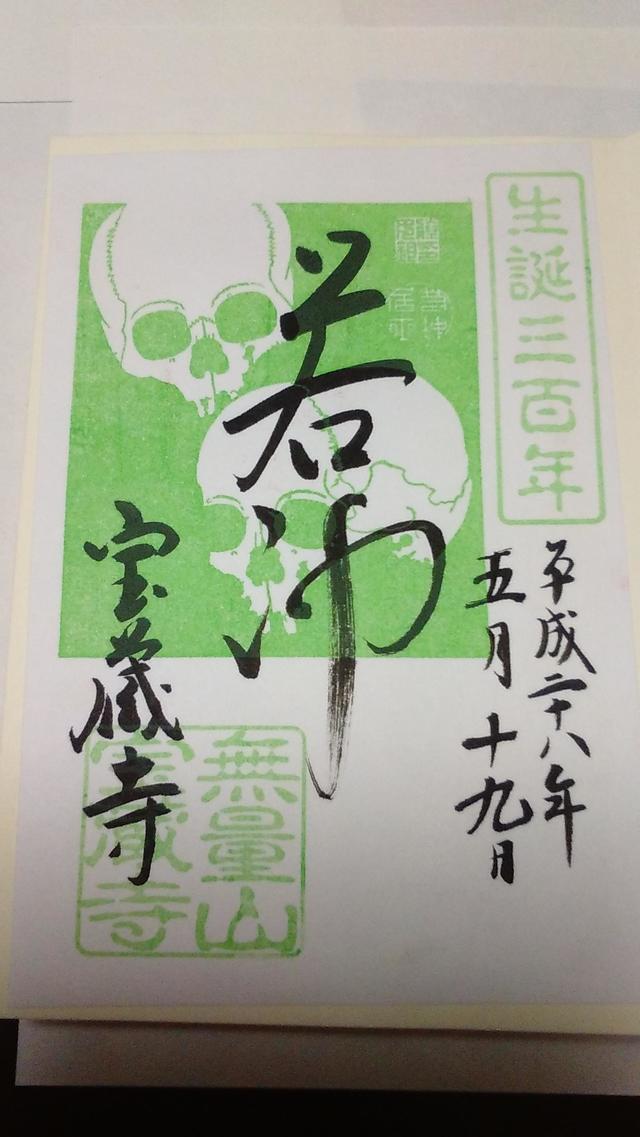 生誕三百年
平成二十八年
五月十九日
若冲
宝蔵寺
無量山
宝蔵寺